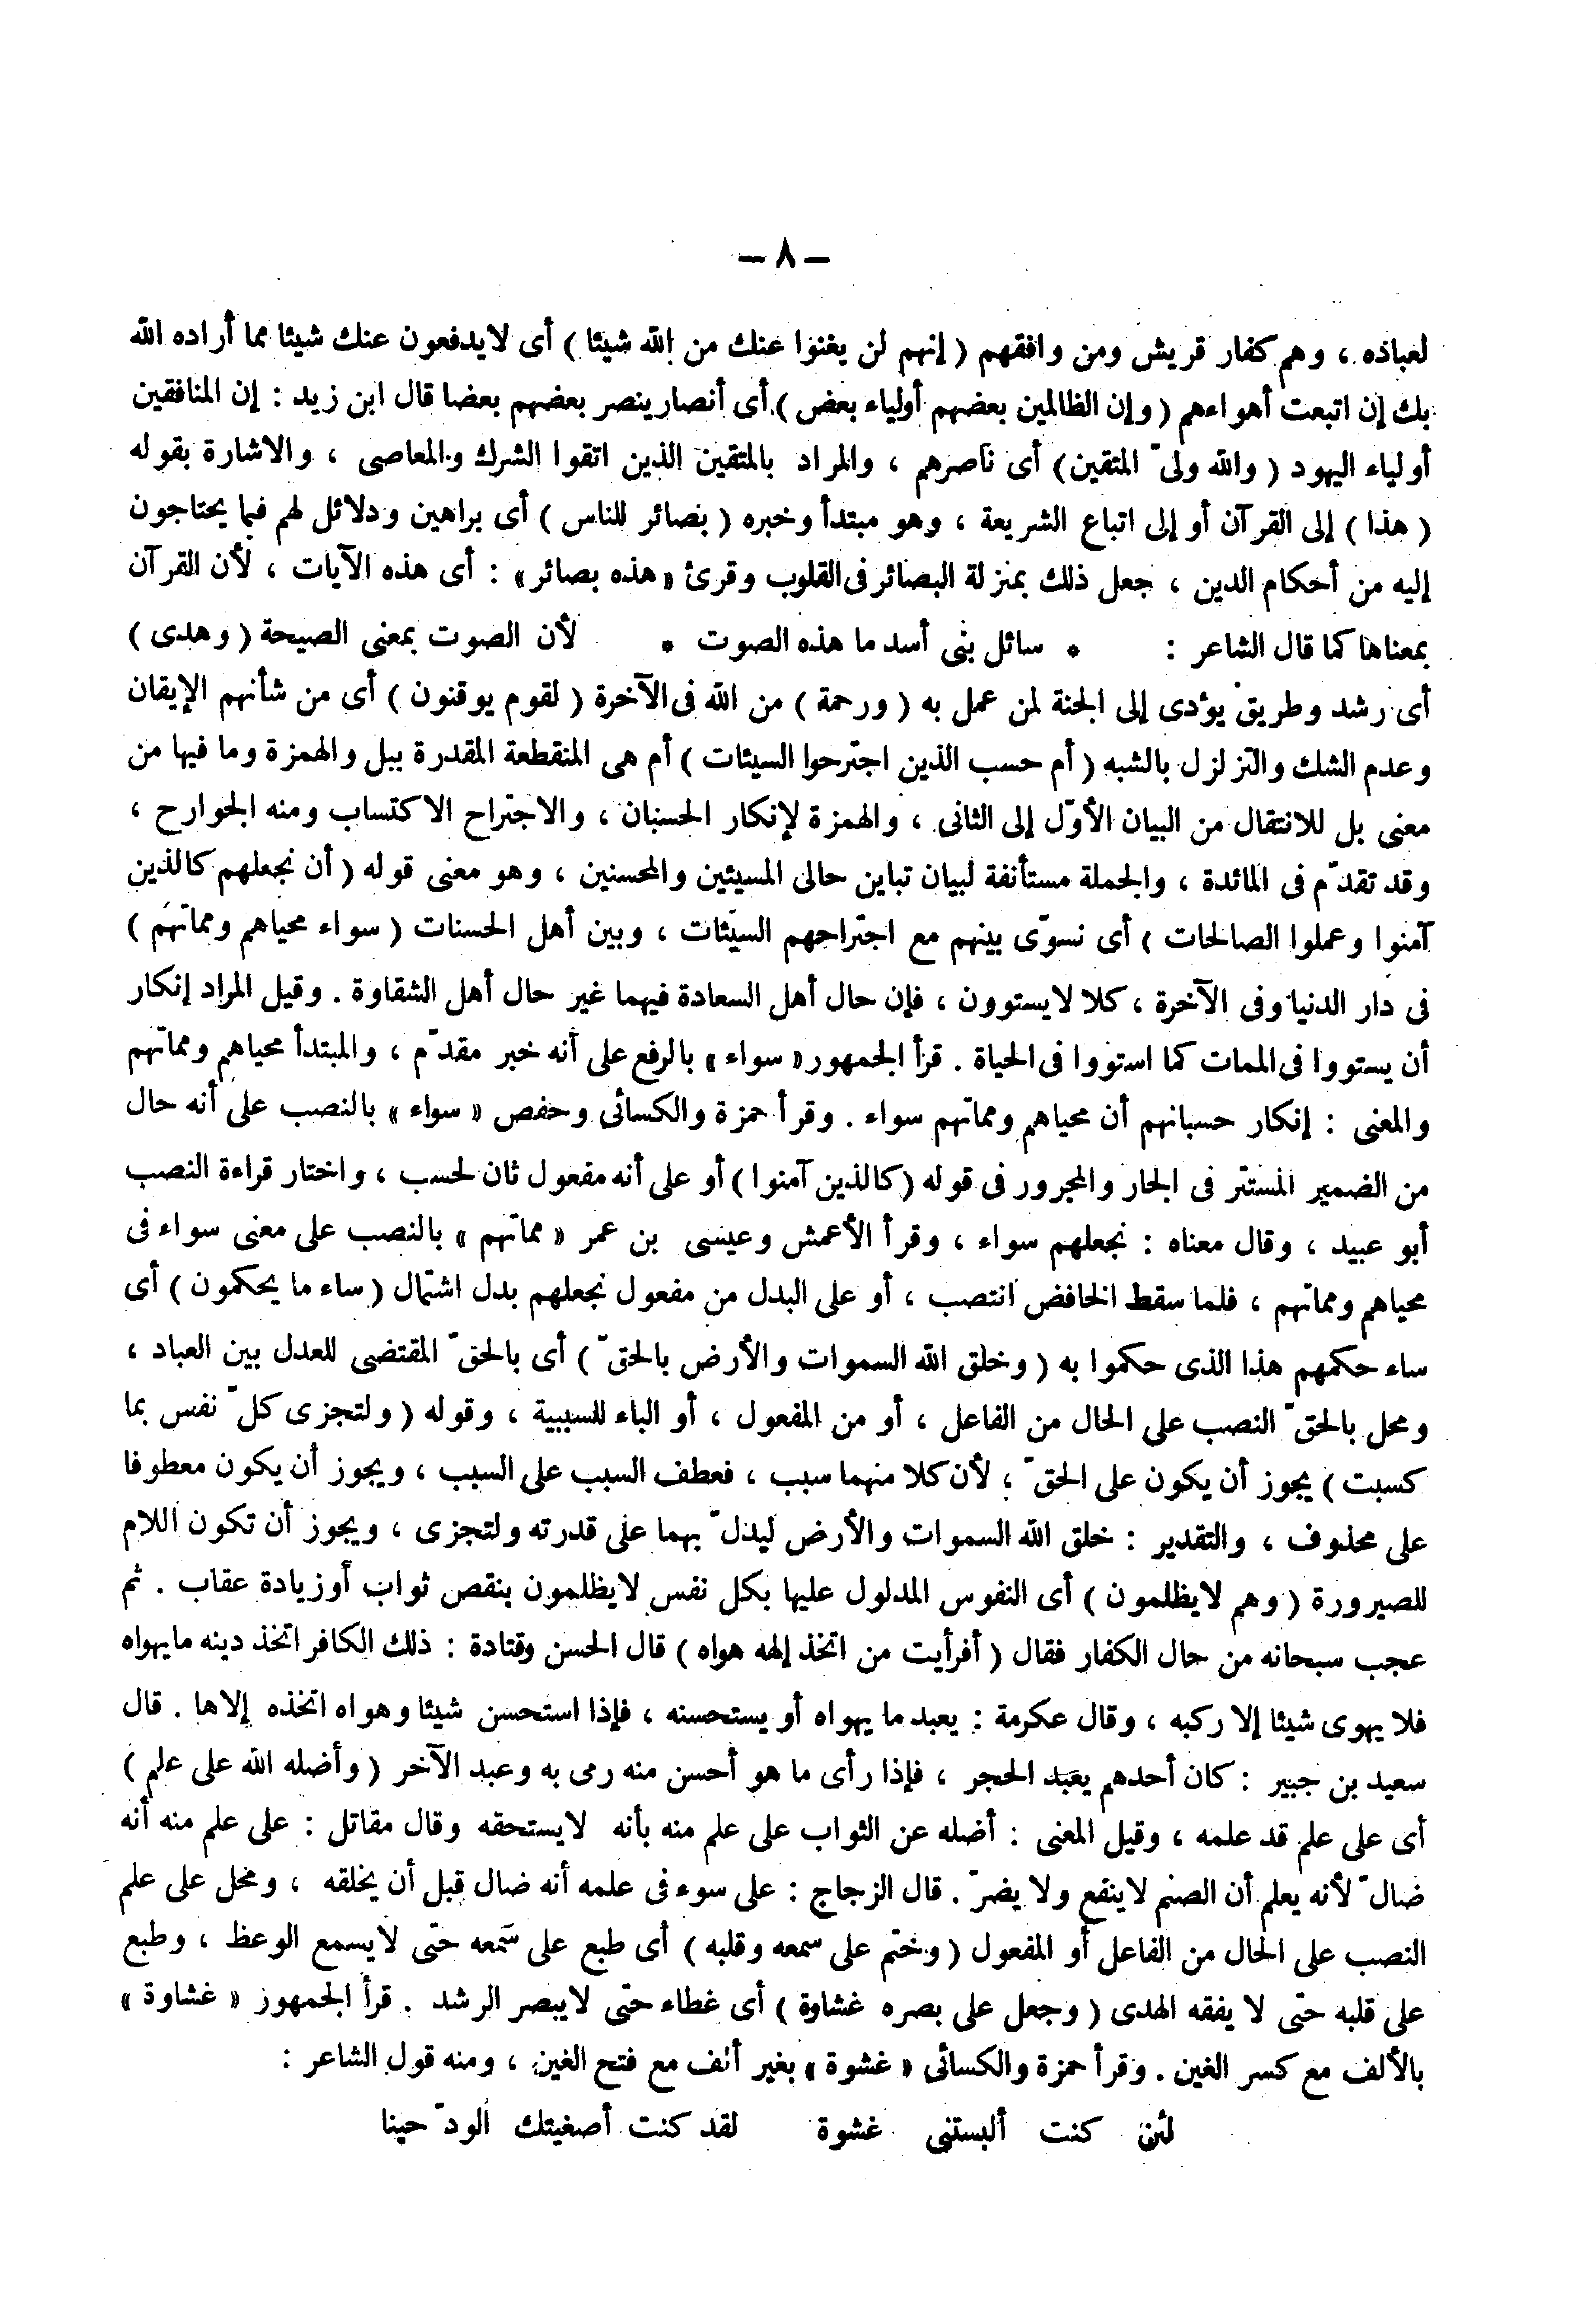 — ٨ —
لعباده ، وهم كفار قريش ومن وافقهم ( إنهم لن يغنوا عنك من الله شيئا ) أى لايدفعون عنك شيئا مما أراده الله
بك إن اتبعت أهواءهم ( وإن الظالمين بعضهم أولياء بعض ) أى أنصار ينصر بعضهم بعضا قال ابن زيد : إن المنافقين
أولياء اليهود ( والله ولىّ المتقين ) أى ناصرهم ، والمراد بالمتقين الذين اتقوا الشرك والمعاصى ، والاشارة بقوله
( هذا ) إلى القرآن أو إلى اتباع الشريعة ، وهو مبتدأ وخبره ( بصائر للناس ) أى براهين ودلائل لهم فيما يحتاجون
إليه من أحكام الدين ، جعل ذلك بمنزلة البصائر فى القلوب وقرئ « هذه بصائر » : أى هذه الآيات ، لأن القرآن
بمعناها كما قال الشاعر : * سائل بنى أسد ما هذه الصوت * لأن الصوت بمعنى الصيحة ( وهدى )
أى رشد وطريق يؤدى إلى الجنة لمن عمل به ( ورحمة ) من الله فى الآخرة ( لقوم يوقنون ) أى من شأنهم الإيقان
وعدم الشك والتزلزل بالشبه ( أم حسب الذين اجترحوا السيئات ) أم هى المنقطعة المقدرة ببل والهمزة وما فيها من
معنى بل للانتقال من البيان الأوّل إلى الثانى ، والهمزة لإنكار الحسبان ، والاجتراح الاكتساب ومنه الجوارح ،
وقد تقدّم فى المائدة ، والجملة مستأنفة لبيان تباين حالى المسيئين والمحسنين ، وهو معنى قوله ( أن نجعلهم كالذين
آمنوا وعملوا الصالحات ) أى نسوّى بينهم مع اجتراحهم السيّئات ، وبين أهل الحسنات ( سواء محياهم ومماتهم )
فى دار الدنيا وفى الآخرة ، كلا لايستوون ، فإن حال أهل السعادة فيهما غير حال أهل الشقاوة . وقيل المراد إنكار
أن يستووا فى الممات كما استووا فى الحياة . قرأ الجمهور « سواء » بالرفع على أنه خبر مقدّم ، والمبتدأ محياهم ومماتهم
والمعنى : إنكار حسبانهم أن محياهم ومماتهم سواء . وقرأ حمزة والكسائى وحفص « سواء » بالنصب على أنه حال
من الضمير المستتر فى الجار والمجرور فى قوله ( كالذين آمنوا ) أو على أنه مفعول ثان لحسب ، واختار قراءة النصب
أبو عبيد ، وقال معناه : نجعلهم سواء ، وقرأ الأعمش وعيسى بن عمر « مماتهم » بالنصب على معنى سواء فى
محياهم ومماتهم ، فلما سقط الخافض انتصب ، أو على البدل من مفعول نجعلهم بدل اشتمال ( ساء ما يحكمون ) أى
ساء حكمهم هذا الذى حكموا به ( وخلق الله السموات والأرض بالحقّ ) أى بالحقّ المقتضى للعدل بين العباد ،
ومحل بالحقّ النصب على الحال من الفاعل ، أو من المفعول ، أو الباء للسببية ، وقوله ( ولتجزى كلّ نفس بما
كسبت ) يجوز أن يكون على الحقّ ، لأن كلا منهما سبب ، فعطف السبب على السبب ، ويجوز أن يكون معطوفا
على محذوف ، والتقدير : خلق الله السموات والأرض ليدلّ بهما على قدرته ولتجزى ، ويجوز أن تكون اللام
للصيرورة ( وهم لايظلمون ) أى النفوس المدلول عليها بكل نفس لايظلمون بنقص ثواب أو زيادة عقاب . ثم
عجب سبحانه من حال الكفار فقال ( أفرأيت من اتخذ إلهه هواه ) قال الحسن وقتادة : ذلك الكافر اتخذ دينه مايهواه
فلا يهوى شيئا إلا ركبه ، وقال عكرمة : يعبد ما يهواه أو يستحسنه ، فإذا استحسن شيئا وهواه اتخذه إلاها . قال
سعيد بن جبير : كان أحدهم يعبد الحجر ، فإذا رأى ما هو أحسن منه رمى به وعبد الآخر ( وأضله الله على علم )
أى على علم قد علمه ، وقيل المعنى : أضله عن الثواب على علم منه بأنه لايستحقه وقال مقاتل : على علم منه أنه
ضالّ لأنه يعلم أن الصنم لاينفع ولا يضرّ . قال الزجاج : على سوء فى علمه أنه ضال قبل أن يخلقه ، ومحل على علم
النصب على الحال من الفاعل أو المفعول ( وختم على سمعه وقلبه ) أى طبع على سمعه حتى لايسمع الوعظ ، وطبع
على قلبه حتى لا يفقه الهدى ( وجعل على بصره غشاوة ) أى غطاء حتى لايبصر الرشد . قرأ الجمهور « غشاوة »
بالألف مع كسر الغين . وقرأ حمزة والكسائى « غشوة » بغير ألف مع فتح الغين ، ومنه قول الشاعر :
لئن كنت ألبستنى غشوة لقد كنت أصغيتك الودّ حينا